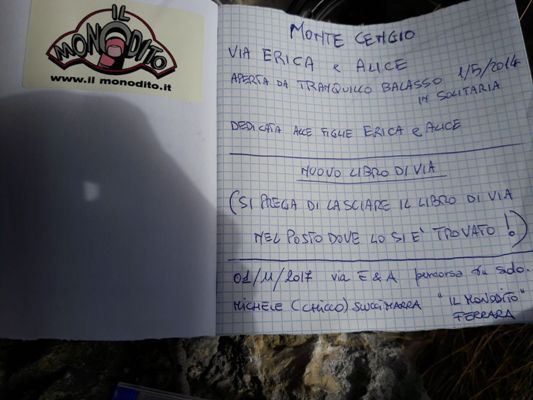 IL
MONODITO
www.il monodito.it
MONTE CENGIO
VIA ERICA e ALICE
APERTA DA TRANQUILLO BALASSO 1/5/2014
IN SOLITARIA
DEDICATA ALLE FIGLIE ERICA e ALICE
NUOVO LIBRO DI VIA
(SI PREGA DI LASCIARE IL LIBRO DI VIA
NEL POSTO DOVE LO SI E' TROVATO!)
01/11/2017 via E & A percorsa da solo.
MICHELE (CHICCO) SUCCIMARRA "IL MONODITO"
FERRARA